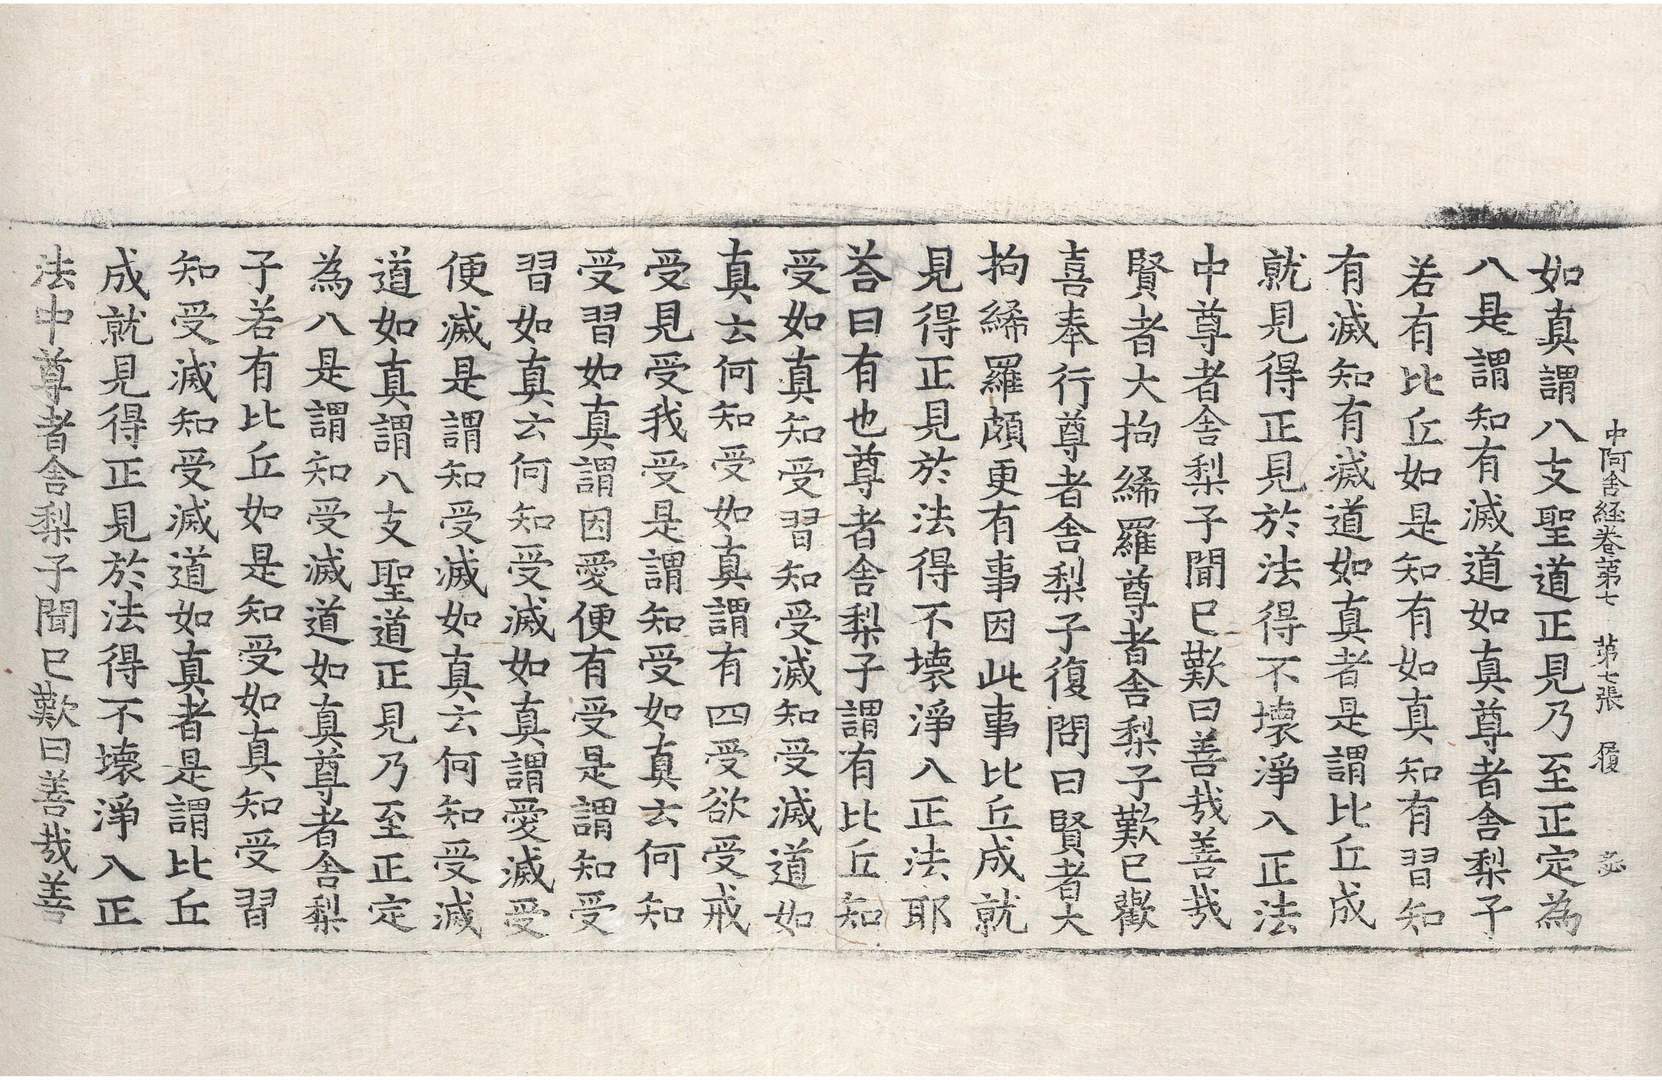 中阿含経卷第七 第七張 履
如真謂八支聖道正見乃至正定為
八是謂知有滅道如真尊者舍梨子
若有比丘如是知有如真知有習知
有滅知有滅道如真者是謂比丘成
就見得正見於法得不壞淨入正法
中尊者舍梨子聞已歎曰善哉善哉
賢者大拘絺羅尊者舍梨子歎已歡
喜奉行尊者舍梨子復問曰賢者大
拘絺羅頗更有事因此事比丘成就
見得正見於法得不壞淨入正法耶
荅曰有也尊者舍梨子謂有比丘知
受如真知受習知受滅知受滅道如
真云何知受如真謂有四受欲受戒
受見受我受是謂知受如真云何知
受習如真謂因愛便有受是謂知受
習如真云何知受滅如真謂愛滅受
便滅是謂知受滅如真云何知受滅
道如真謂八支聖道正見乃至正定
為八是謂知受滅道如真尊者舍梨
子若有比丘如是知受如真知受習
知受滅知受滅道如真者是謂比丘
成就見得正見於法得不壞淨入正
法中尊者舍梨子聞已歎曰善哉善